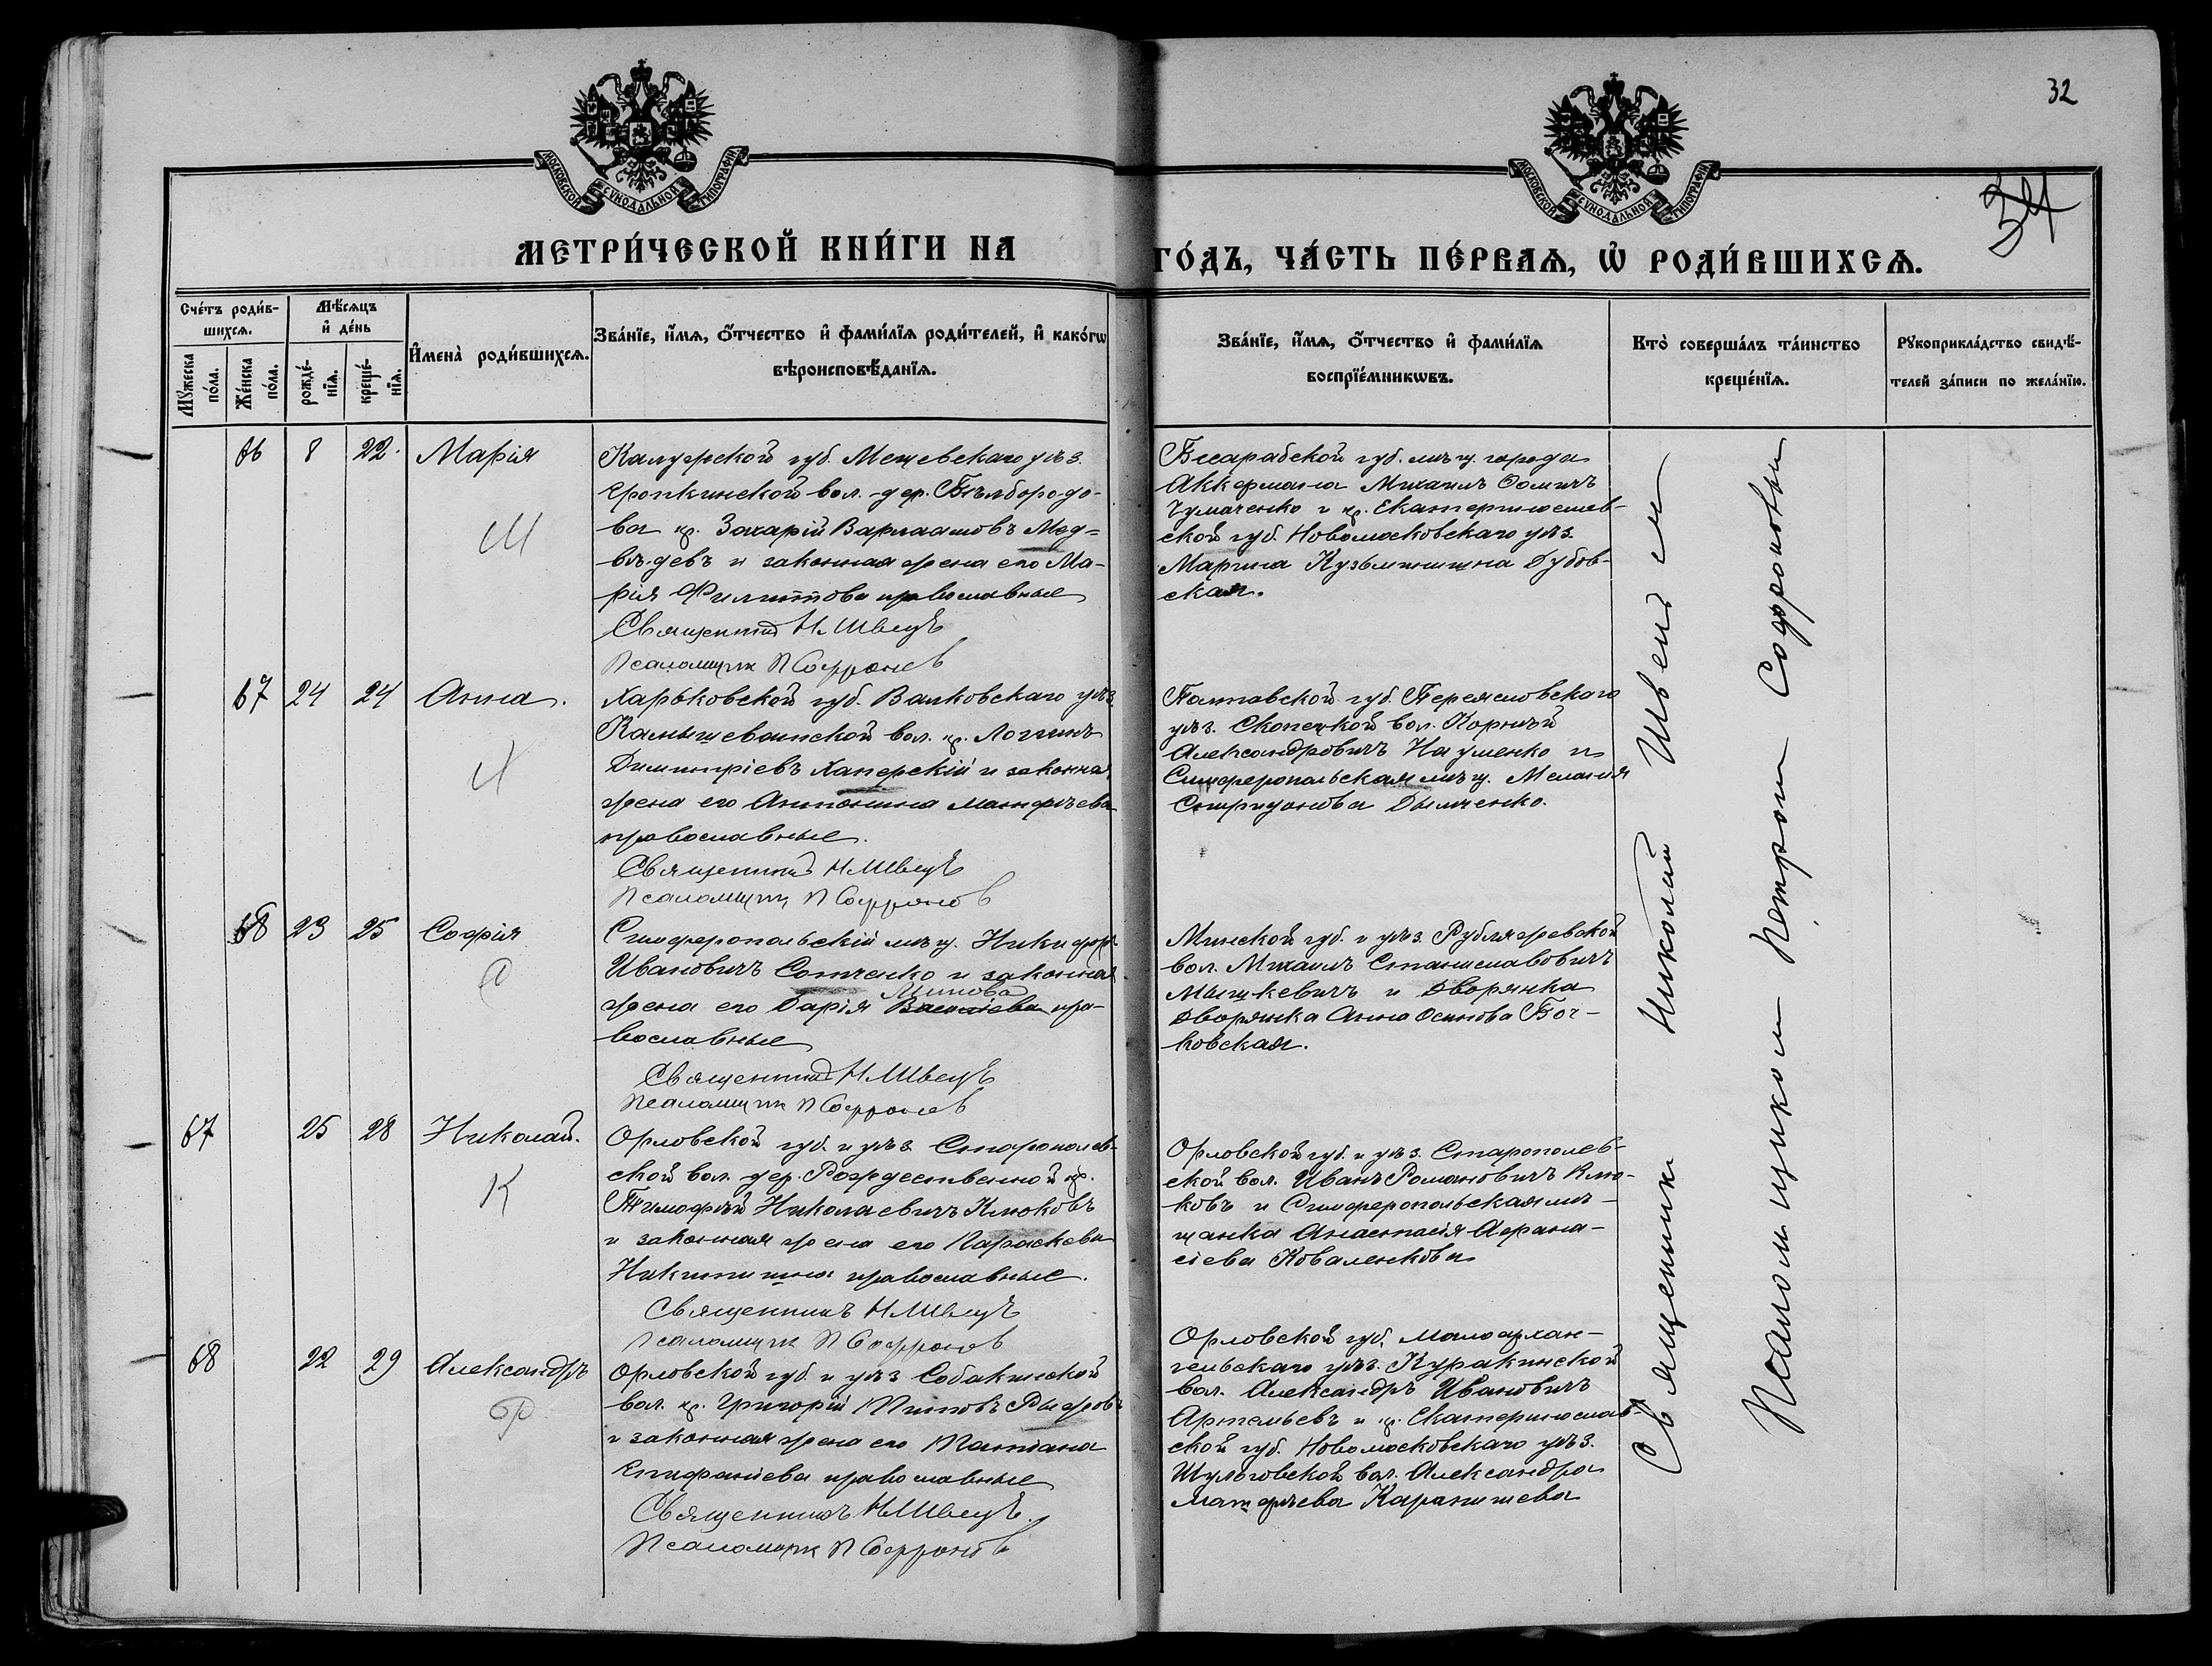 32
34
МОСКОВСКОЙ СѴНОДАЛЬНОЙ ТИПОГРАФІИ
МОСКОВСКОЙ СѴНОДАЛЬНОЙ ТИПОГРАФІИ
МЕТРИ́ЧЕСКОЙ КНИ́ГИ НА
ГО́ДЪ, ЧА́СТЬ ПЕ́РВАѦ, Ѽ РОДИ́ВШИХСѦ.
Сче́тъ роди́в-
шихсѧ.
Мꙋжеска по́ла.
Же́нска по́ла.
Мѣ́сѧцъ
и҆ де́нь
рожде́-
нїѧ.
креще́-
нїѧ.
И҆мена̀ роди́вшихсѧ.
Зва́нїе, и҆́мѧ, ѻ҆́тчество и҆ фами́лїѧ роди́телей, и҆ како́гѡ
вѣроисповѣ́данїѧ.
Зва́нїе, и҆́мѧ, ѻ҆́тчество и҆ фами́лїѧ
воспрїе́мникѡвъ.
Кто̀ соверша́лъ та́инство
креще́нїѧ.
Рꙋкоприкла́дство свидѣ́-
телей за́писи по жела́нїю.
66 8 22. Марія
Калужской губ. Мещевскаго уѣз.
вол. дер. Бѣлбородо-
ва кр. Захарій Варлаамовъ Мед=
вѣдевъ и законная жена его Ма-
рия Филиппова православные
Священникъ Н. Швецъ
Псаломщик П Софронов
Бесарабской губ. мѣщ. города
Аккермана Михаилъ Ѳомичъ
Чумаченко и кр. Екатеринослав-
ской губ. Новомосковскаго уѣз.
Марина Кузьминишна Дубов-
ская.
67 24 24 Анна.
Харьковской губ. Валковскаго уѣз.
вол. кр. Логгинъ
Димитріевъ Хаперскій и законная
жена его Антонина Матфѣева
православные.
Священникъ Н Швецъ
Псаломщик П Софронов
Полтавской губ. Переяславскаго
уѣз. вол. Корнѣй
Александровичъ Науменко и
Симферопольская мѣщ. Мелания
Спиридонова Дымченко.
68 23 25 Софія
Симферопольскій мѣщ. Никифоръ
Ивановичъ Сотченко и законная
Минова
жена его Дарія Васильева пра-
вославные
Священникъ Н Швецъ
Псаломщик П Софронов
Минской губ. и уѣз.
вол. Михаилъ Станиславовичъ
Мышкевичъ и дворянка
дворянка Анна Осипова Боч-
ковская.
67 25 28 Николай.
К
Орловской губ. и уѣз. Старополев-
ской вол. дер. Рождественной кр.
Тимофѣй Николаевичъ Клюковъ
и законная жена его Параскева
Никитишна православные.
Священникъ Н Швецъ
Псаломщик П Софронов
Орловской губ. и уѣз. Старополев-
ской вол. Иванъ Романовичъ Клю-
ковъ и Симферопольская мѣ-
щанка Анастасія Афана-
сіева Коваленкова
68 22 29 Александръ
Р
Орловской губ. и уѣз Собакинской
вол. кр. Григорій Титовъ
и законная жена его Татіана
Епифаніева православные
Священникъ Н Швецъ.
Псаломщик П Софронов
Орловской губ. Малоархан-
гельскаго уѣз. Куракинской
вол. Александръ Ивановичъ
и кр. Екатеринослав-
ской губ. Новомосковскаго уѣз.
вол. Александра
Матфѣева
Священник Николай Швец с
Псаломщиком Петром Софроновым